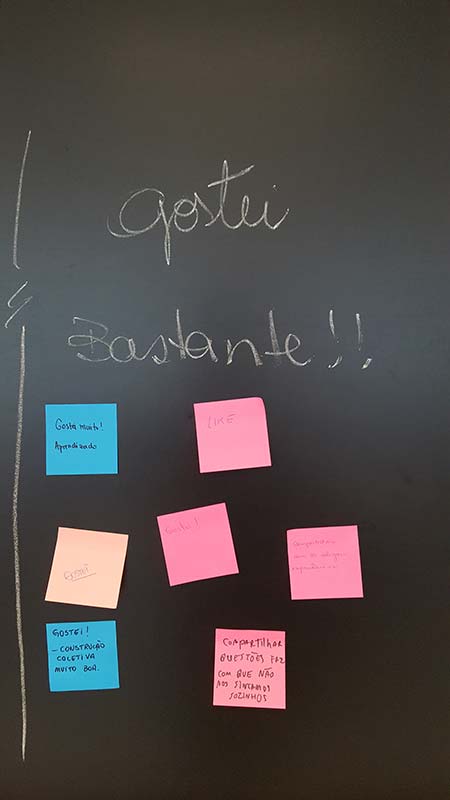 gostei
Bastante!!
Gostei muito!
Aprendizado
LIKE
Gostei!
GOSTEI
Compartilhar
com os colegas
experiências
GOSTEI!
- CONSTRUÇÃO
COLETIVA
MUITO BOA.
COMPARTILHAR
QUESTÕES FAZ
COM QUE NÃO
NOS SINTAMOS
SOZINHOS